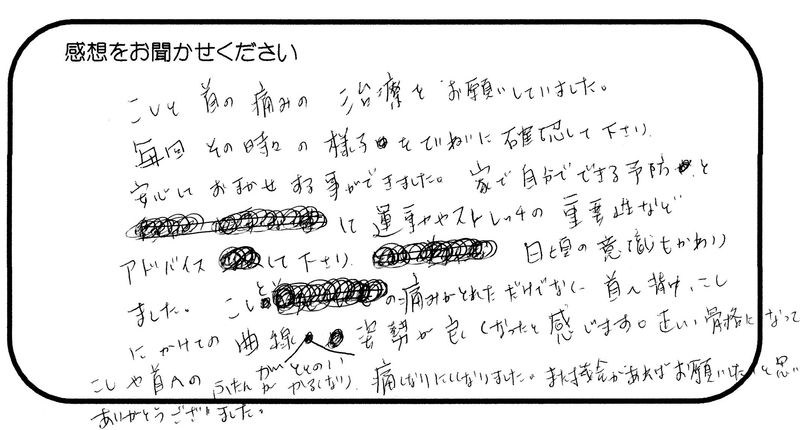 感想をお聞かせください
こしと首の痛みの治療をお願いしていました。
毎回その時々の様子をていねいに確認して下さり、
安心しておまかせする事ができました。家で自分でできる予防と
して運動やストレッチの重要性など
アドバイスして下さり、日頃の意識もかわり
ました。こしと首の痛みがとれただけでなく、首〜背中、こし
にかけての曲線がととのい姿勢が良くなったと感じます。正しい骨格になって
こしや首への ふたんがかるくなり、痛くなりにくくなりました。また機会があればお願いしたいと思い
ありがとうございました。